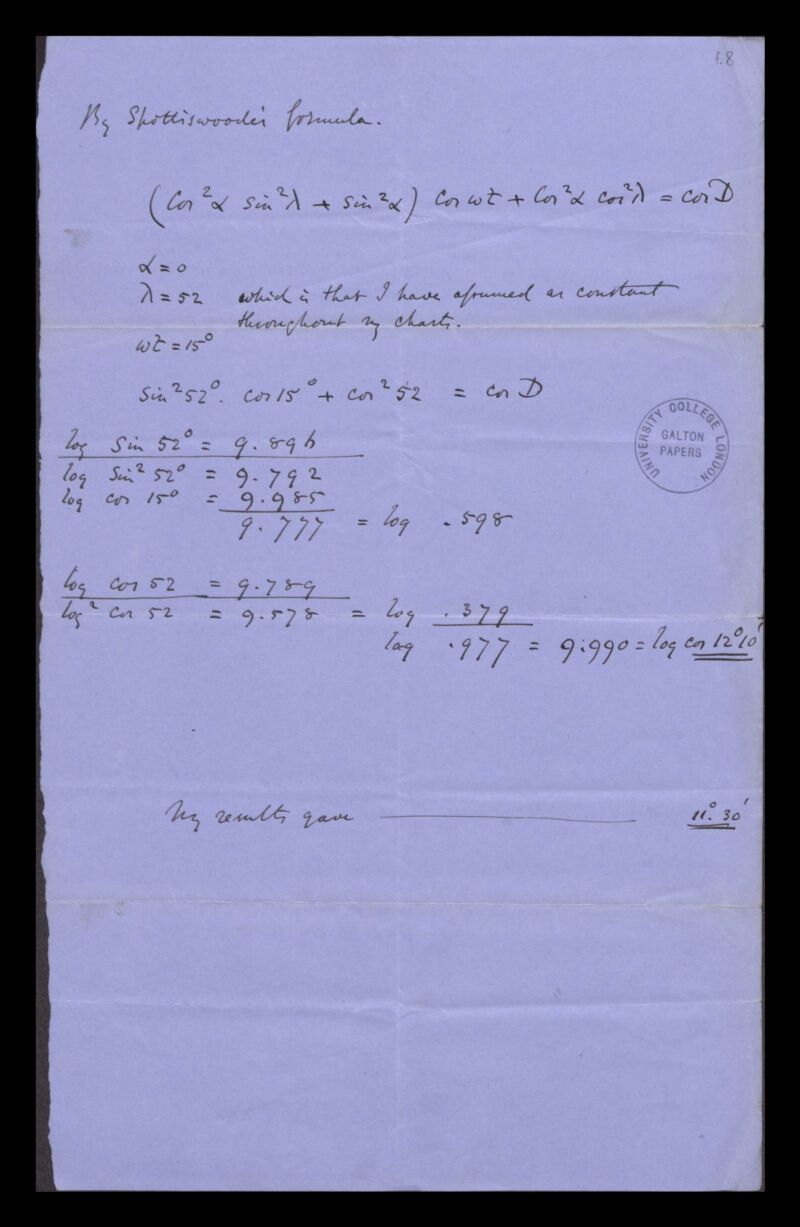 f.8
By Spottiswoode's formula.
(Cos²α sin²λ + sin²α) Cos wt + Cos²α cos²λ = cos D
α = 0
λ = 52 which is that I have assumed as constant
throughout my charts.
wt = 15°
Sin²52°. Cos 15° + Cos²52 = Cos D
log Sin 52° = 9.896
log Sin² 52° = 9.792
log cos 15° = 9.985
9.777 = log .598
log cos 52 = 9.789
log² Cos 52 = 9.578 = log .379
log .977 = 9.990 = log cos 12°10'
My results gave 11°. 30'
UNIVERSITY COLLEGE LONDON
GALTON
PAPERS